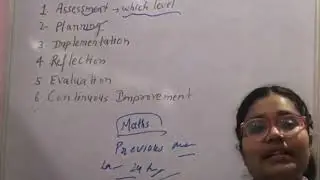 1. Assessment → which level
2- Planning
3 Implementation
4 Reflection
5 Evaluation
6 Continuous Improvement
Maths
Previous
24